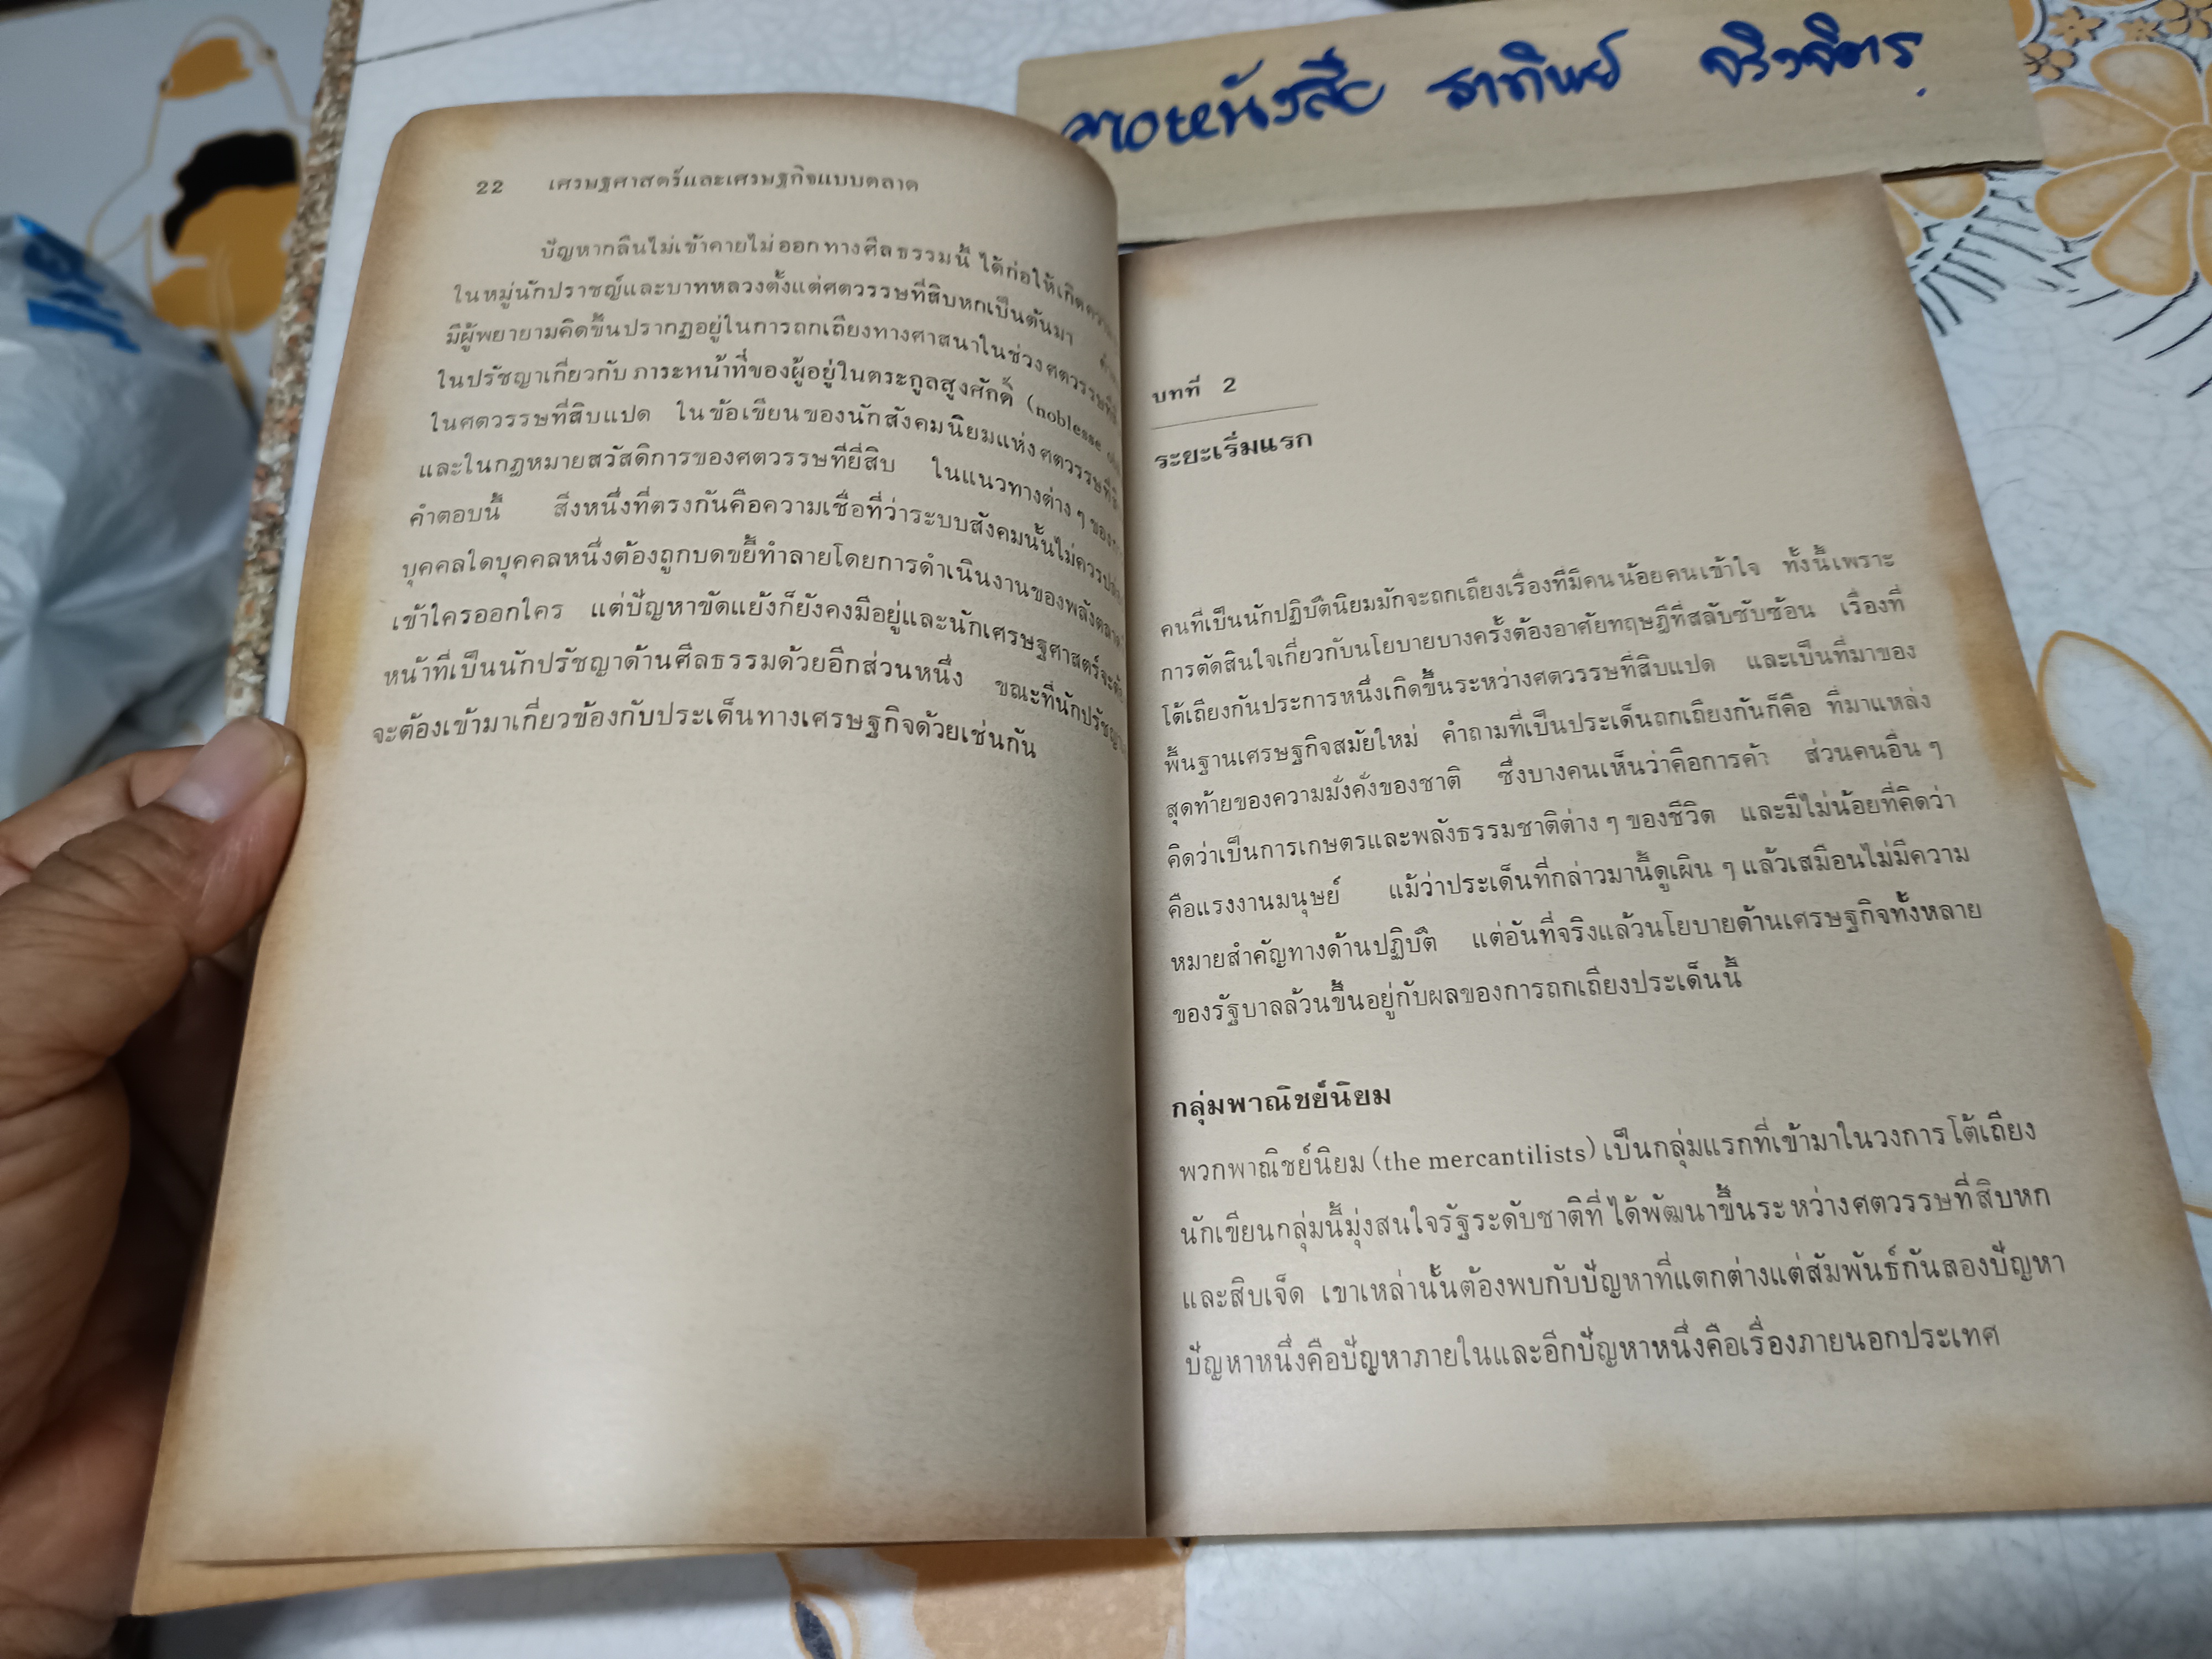 ขายหนังสือ ธาทิพย์ จริงจิตร
22 เศรษฐศาสตร์และเศรษฐกิจแบบตลาด
ปัญหากลืนไม่เข้าคายไม่ออกทางศีลธรรมนี้ ได้ก่อให้เกิด
ในหมู่นักปราชญ์และบาทหลวงตั้งแต่ศตวรรษที่สิบหกเป็นต้นมา
มีผู้พยายามคิดขึ้นปรากฏอยู่ในการถกเถียงทางศาสนาในช่วงศตวรรษที่
ในปรัชญาเกี่ยวกับ ภาระหน้าที่ของผู้อยู่ในตระกูลสูงศักดิ์ (noblesse
ในศตวรรษที่สิบแปด ในข้อเขียนของนักสังคมนิยมแห่งศตวรรษที่
และในกฎหมายสวัสดิการของศตวรรษที่ยี่สิบ ในแนวทางต่าง ๆ ของ
คำตอบนี้ สิ่งหนึ่งที่ตรงกันคือความเชื่อที่ว่าระบบสังคมนั้นไม่ควร
บุคคลใดบุคคลหนึ่งต้องถูกบดขยี้ทำลายโดยการดำเนินงานของพลังตลาด
เข้าใครออกใคร แต่ปัญหาขัดแย้งก็ยังคงมีอยู่และนักเศรษฐศาสตร์จะ
หน้าที่เป็นนักปรัชญาด้านศีลธรรมด้วยอีกส่วนหนึ่ง ขณะที่นักปรัชญา
จะต้องเข้ามาเกี่ยวข้องกับประเด็นทางเศรษฐกิจด้วยเช่นกัน
บทที่ 2
ระยะเริ่มแรก
คนที่เป็นนักปฏิบัตินิยมมักจะถกเถียงเรื่องที่มีคนน้อยคนเข้าใจ ทั้งนี้เพราะ
การตัดสินใจเกี่ยวกับนโยบายบางครั้งต้องอาศัยทฤษฎีที่สลับซับซ้อน เรื่องที่
โต้เถียงกันประการหนึ่งเกิดขึ้นระหว่างศตวรรษที่สิบแปด และเป็นที่มาของ
พื้นฐานเศรษฐกิจสมัยใหม่ คำถามที่เป็นประเด็นถกเถียงกันก็คือ ที่มาแหล่ง
สุดท้ายของความมั่งคั่งของชาติ ซึ่งบางคนเห็นว่าคือการค้า ส่วนคนอื่น ๆ
คิดว่าเป็นการเกษตรและพลังธรรมชาติต่าง ๆ ของชีวิต และมีไม่น้อยที่คิดว่า
คือแรงงานมนุษย์ แม้ว่าประเด็นที่กล่าวมานี้ดูเผิน ๆ แล้วเสมือนไม่มีความ
หมายสำคัญทางด้านปฏิบัติ แต่อันที่จริงแล้วนโยบายด้านเศรษฐกิจทั้งหลาย
ของรัฐบาลล้วนขึ้นอยู่กับผลของการถกเถียงประเด็นนี้
กลุ่มพาณิชย์นิยม
พวกพาณิชย์นิยม (the mercantilists) เป็นกลุ่มแรกที่เข้ามาในวงการโต้เถียง
นักเขียนกลุ่มนี้มุ่งสนใจรัฐระดับชาติที่ได้พัฒนาขึ้นระหว่างศตวรรษที่สิบหก
และสิบเจ็ด เขาเหล่านั้นต้องพบกับปัญหาที่แตกต่างแต่สัมพันธ์กันสองปัญหา
ปัญหาหนึ่งคือปัญหาภายในและอีกปัญหาหนึ่งคือเรื่องภายนอกประเทศ